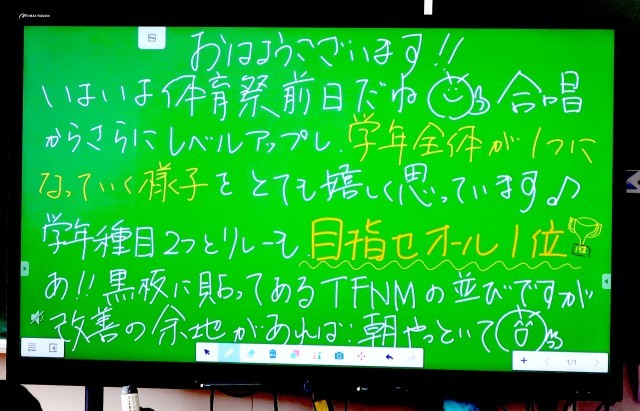 おはようございます!!
いよいよ体育祭前日だね 合唱
からさらにレベルアップし、学年全体が1つに
なっていく様子をとても嬉しく思っています♪
学年種目2つとリレーも目指せオール1位
あ!!黒板に貼ってあるTFNMの並びですが
改善の余地があれば朝やっといて
1/1